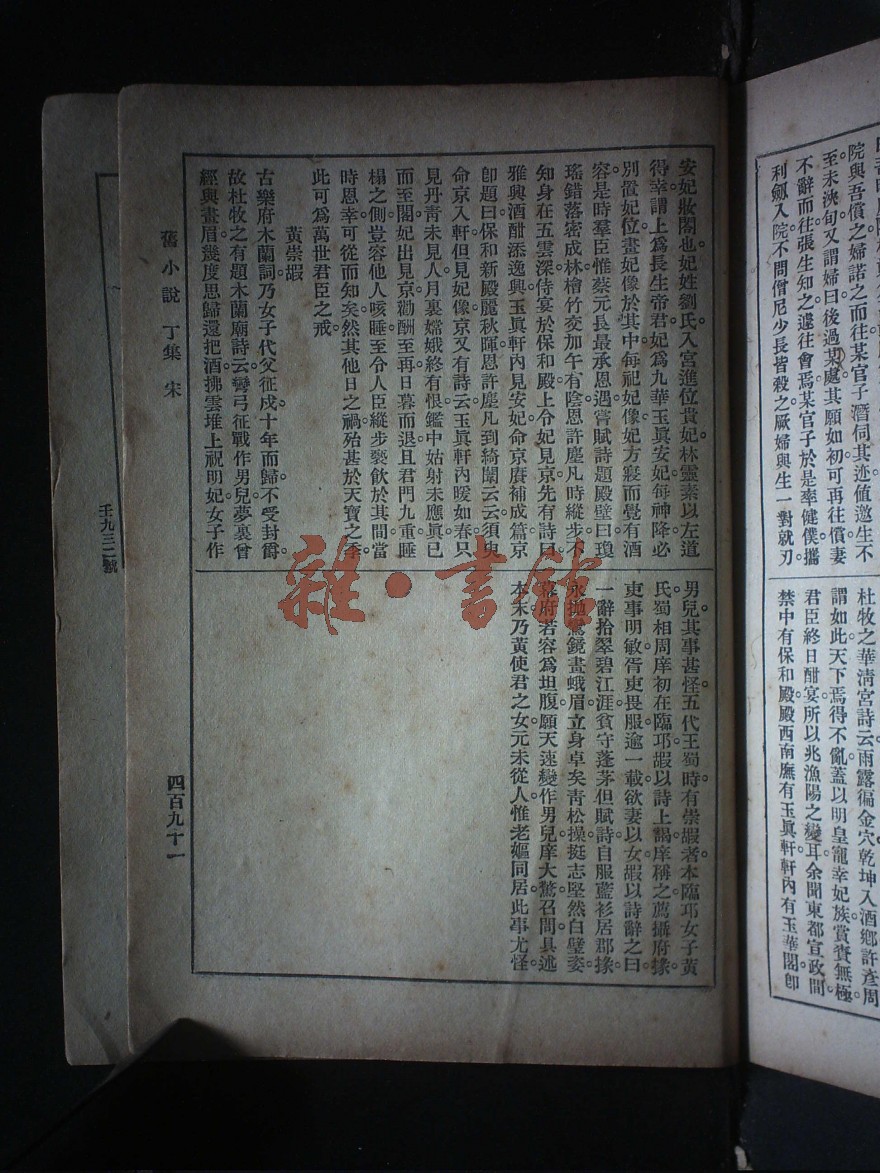 院與吾償之婦諾之而往某官子潛伺其迹値邀生不
至未浹旬又謂婦曰後過某處其願如初可再往償妻
不辭而往張生知之遽往會焉某官子於是率健僕攜
利劒入院不問僧尼少長皆殺之厥婦與生一對就刃
杜牧之華淸宮詩云雨露徧金穴乾坤入酒鄉許彥周
謂如此天下焉得不亂蓋以明皇寵幸妃族賞賚無極。
君臣終日酣宴所以兆漁陽之變耳余聞東都宣政間。
禁中有保和殿殿西南廡有玉眞軒軒內有玉華閣卽
安妃妝閣也妃姓劉氏入宮進位貴妃林靈素以左道
得幸謂上爲長生帝君妃爲九華玉眞安妃每神降必
別置妃位畫妃像於其中每祀妃像妃方寢而覺有酒
容是時羣臣惟蔡元長最承恩遇嘗賦詩題殿壁曰瓊
瑤錯落密成林檜竹交加午有陰恩許塵凡時縱步不
知身在五雲深侍宴於保和殿上令妃見京先有詩曰
雅興酒酣添逸興玉眞軒內見安妃命京賡補成篇京
卽題曰保和新殿麗秋暉恩許塵凡到綺闈云云須臾
命京入軒但見妃像京又有詩云玉眞軒內暖如春只
見丹靑未見人月裏嫦娥終有恨鑑中姑射未應眞已
而至閣妃出見京勸酬至再日暮而退且君門九重睡
榻之側豈容他人咳唾至令人臣縱步褻飲於其間當
時恩幸可從而知矣然其他日之禍殆甚於天寶之季
此可爲萬世君臣之戒
黃崇嘏
古樂府木蘭詞乃女子代父征戍十年而歸不受封爵
故杜牧之有題木蘭廟詩云彎弓征戰作男兒夢裏曾
經與畫眉幾度思歸還把酒拂雲堆上祝明妃女子作
男兒其事甚怪五代王蜀時有崇嘏者本臨邛女子黃
氏蜀相周庠初在臨邛嘏以詩上謁庠稱之薦攝府掾
吏事明敏胥吏畏服逾一載欲妻以女嘏以詩辭之曰
一辭拾翠碧江涯貧守蓬茅但賦詩自服藍衫居郡掾
永抛鸞鏡畫蛾眉立身卓矣靑松操挺志堅然白璧姿
幕府若容爲坦腹願天速變作男兒庠大驚召問具述
本末乃黃使君之女元未從人惟老嫗同居此事尤怪
舊小說 丁集 宋
四百九十一
壬九三二號
雜·書館